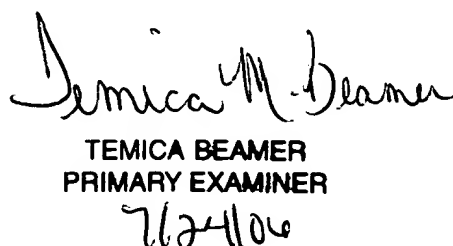 Temica M. Beamer
TEMICA BEAMER
PRIMARY EXAMINER
7/24/06